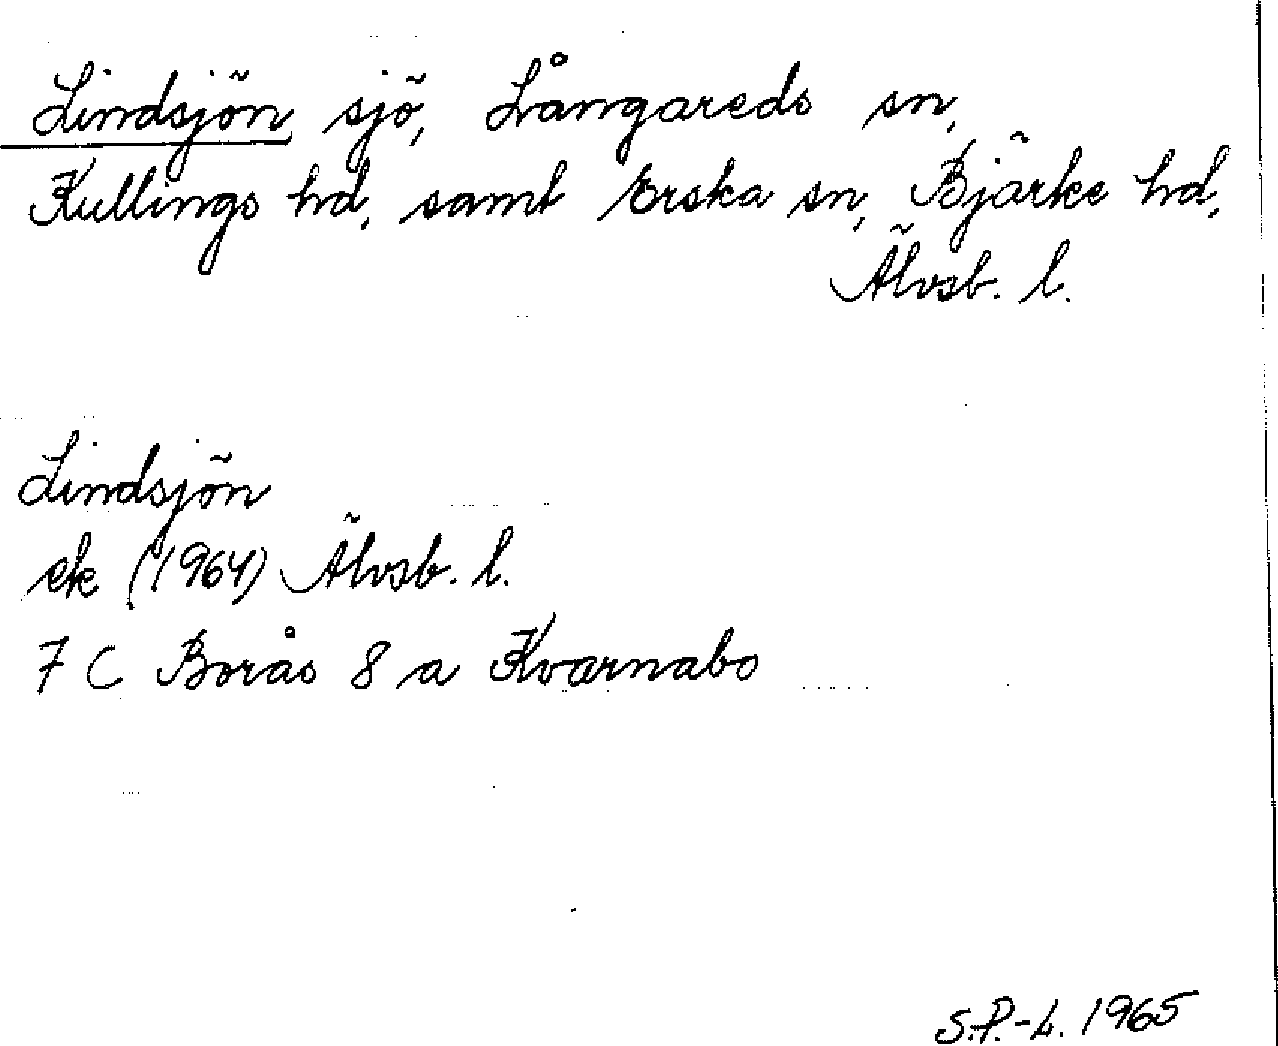 Lindsjön sjö, Långareds sn,
Kullings hd, samt Erska sn, Bjärke hd,
Älvsb. l.
Lindsjön
ek (1964) Älvsb. l.
7 C Borås 8 a Kvarnabo
S.P.-L. 1965